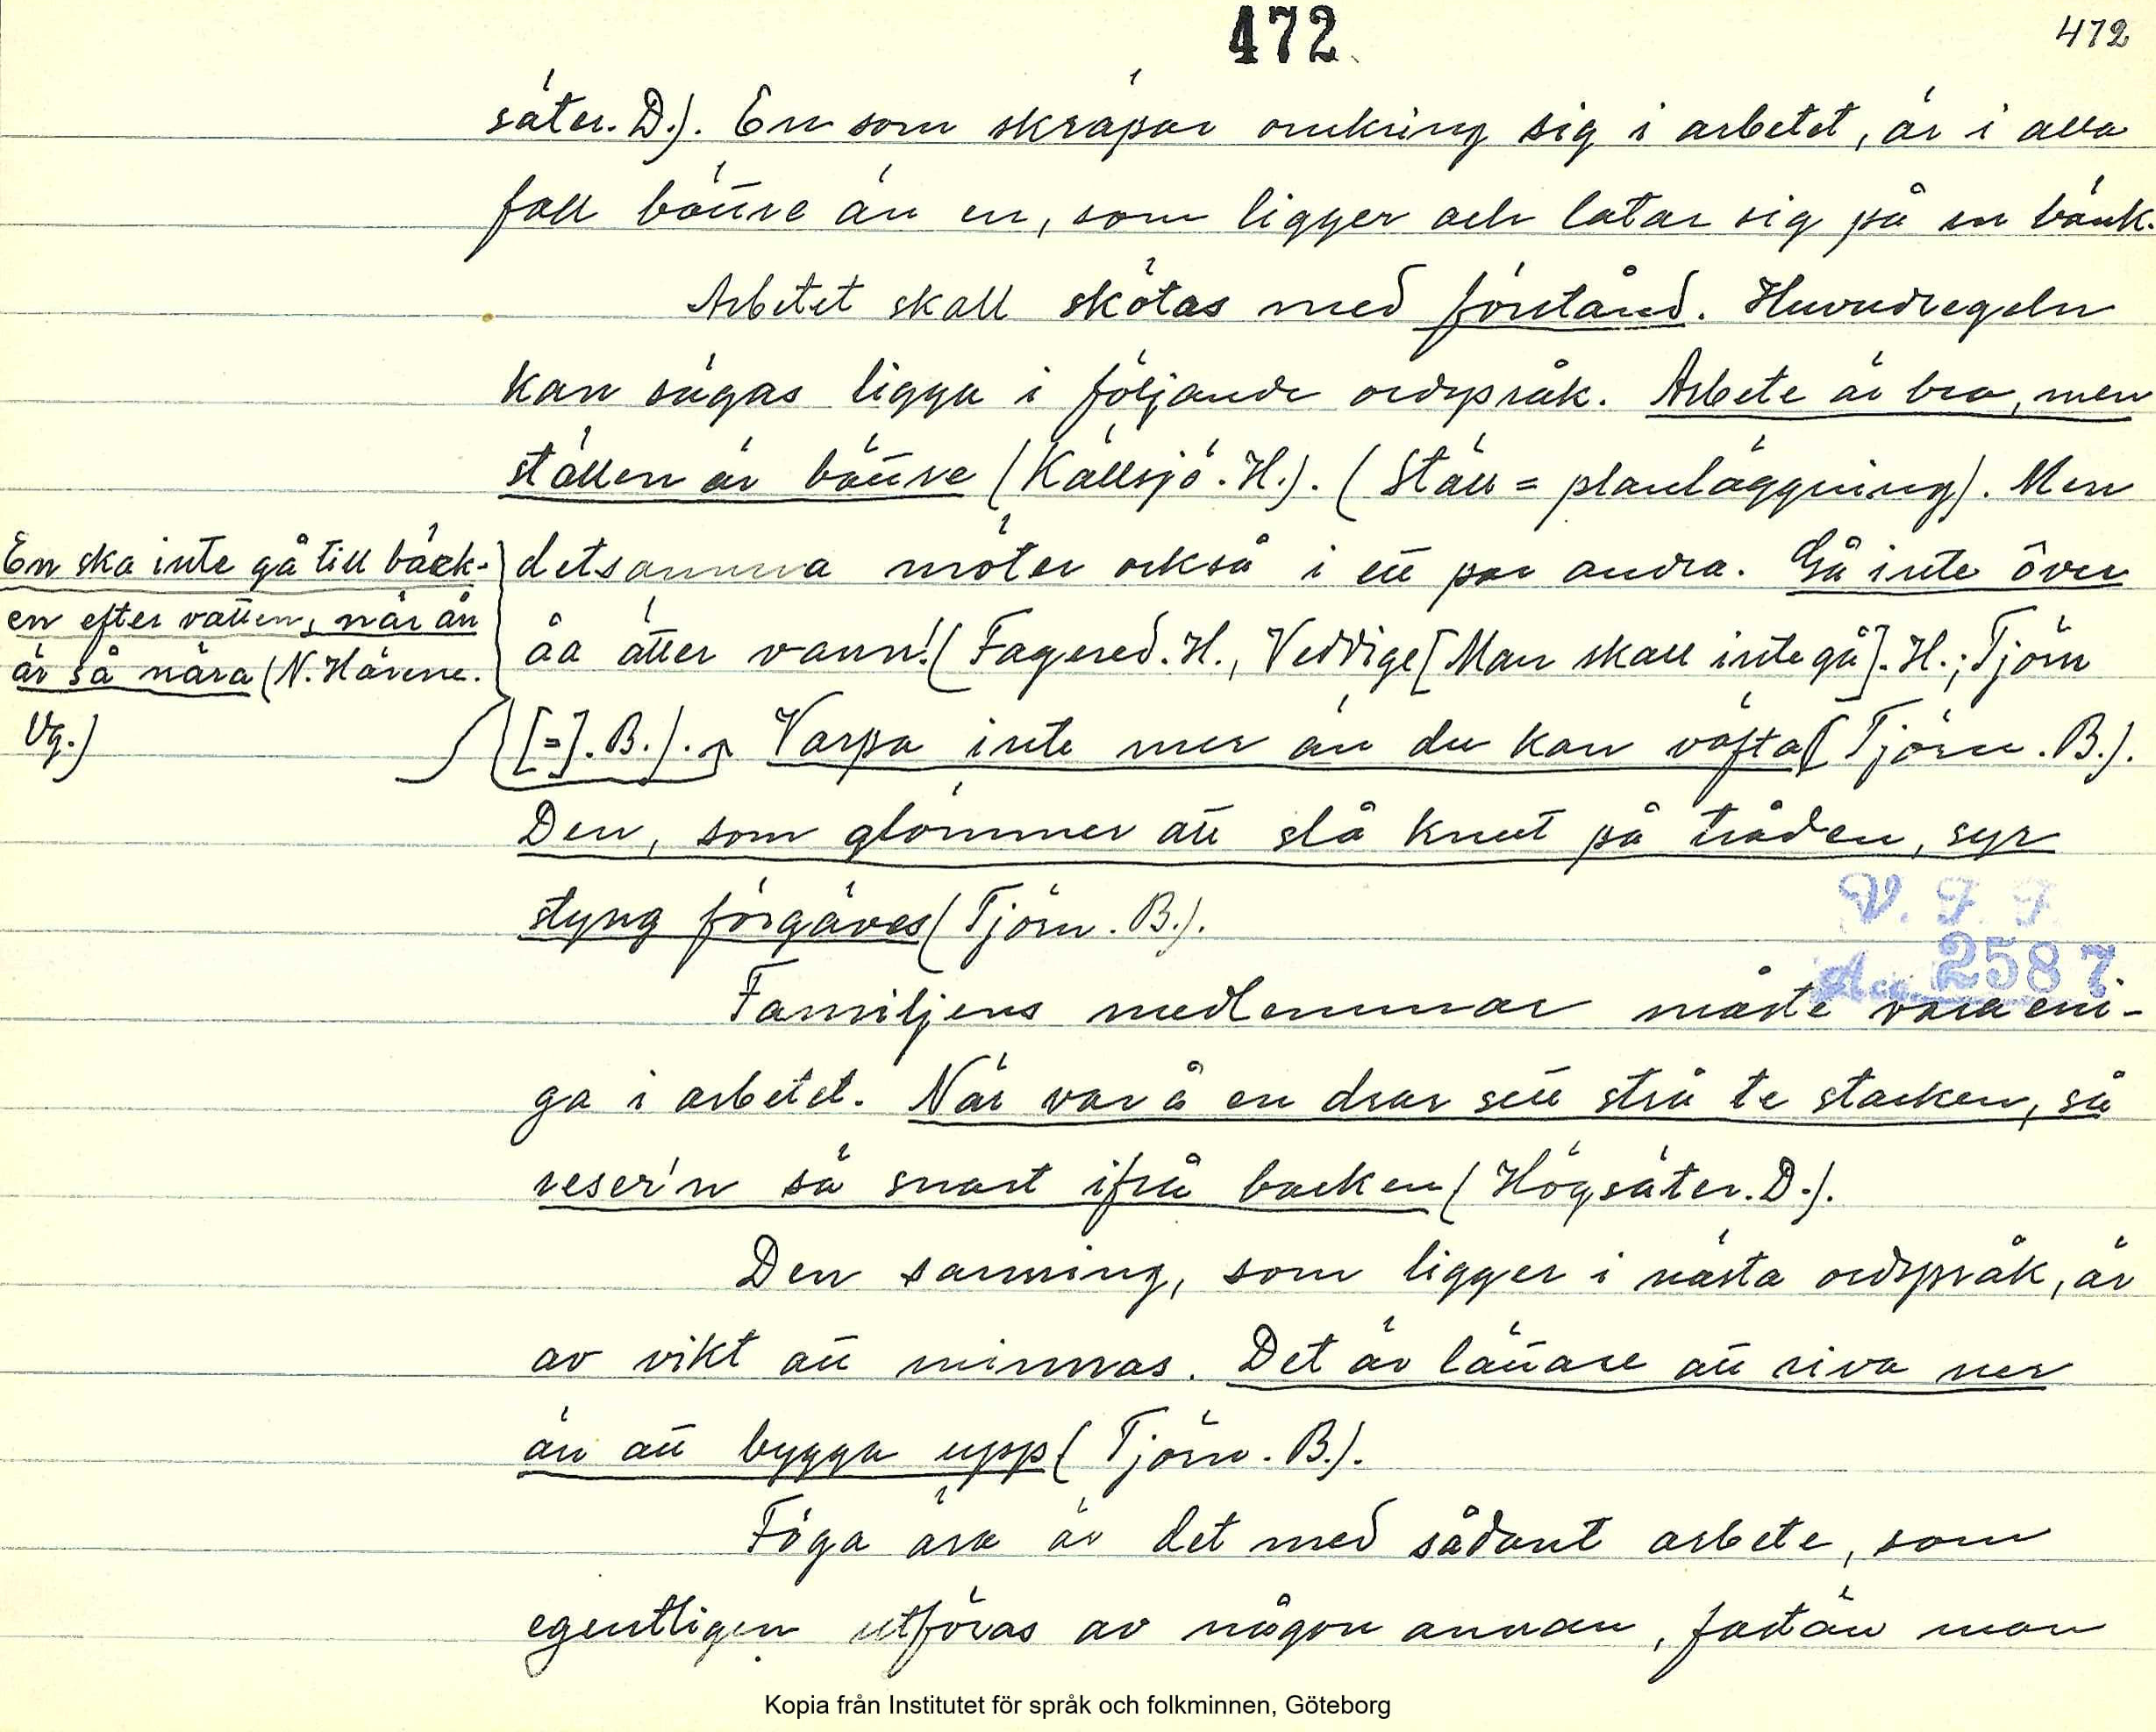 472
472
säter. D.). En som skräpar omkring sig i arbetet, är i alla
fall bättre än en, som ligger och latar sig på en bänk.
Arbetet skall skötas med förstånd. Huvudregeln
kan sägas ligga i följande ordspråk. Arbete är bra, men
ställen är bättre (Källsjö. H.). (Ställ = planläggning). Men
detsamma möter också i ett par andra. Gå inte över
åa ätter vann! (Fagered. H., Veddige [Man skall inte gå]. H.; Tjörn
[=]. B.). Varpa inte mer än du kan väfta (Tjörn. B.).
En ska inte gå till bäck-
en efter vatten, när ån
är så nära (N. Härene.
Vg.)
Den, som glömmer att slå knut på tråden, syr
styng förgäves (Tjörn. B.).
V. F. F.
Acc. 2587.
Familjens medlemmar måste vara eni-
ga i arbetet. När var å en drar sett strå te stacken, så
reser'n så snart ifrå backen (Högsäter. D.).
Den sanning, som ligger i nästa ordspråk, är
av vikt att minnas. Det är lättare att riva ner
än att bygga upp (Tjörn. B.).
Föga ära är det med sådant arbete, som
egentligen utföras av någon annan, fastän man
Kopia från Institutet för språk och folkminnen, Göteborg